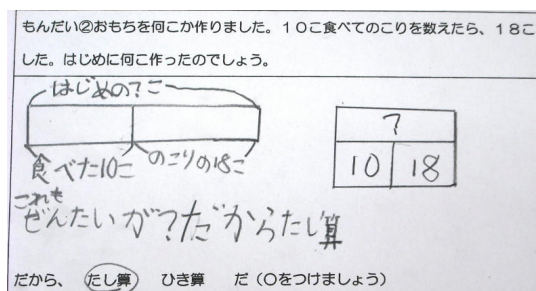 もんだい②おもちを何こか作りました。１０こ食べてのこりを数えたら、１８こ
した。はじめに何こ作ったのでしょう。
はじめの?こ
食べた10こ
のこりの18こ
?
10 18
これも
ぜんたいが?だからたし算
だから、 たし算 ひき算 だ（○をつけましょう）